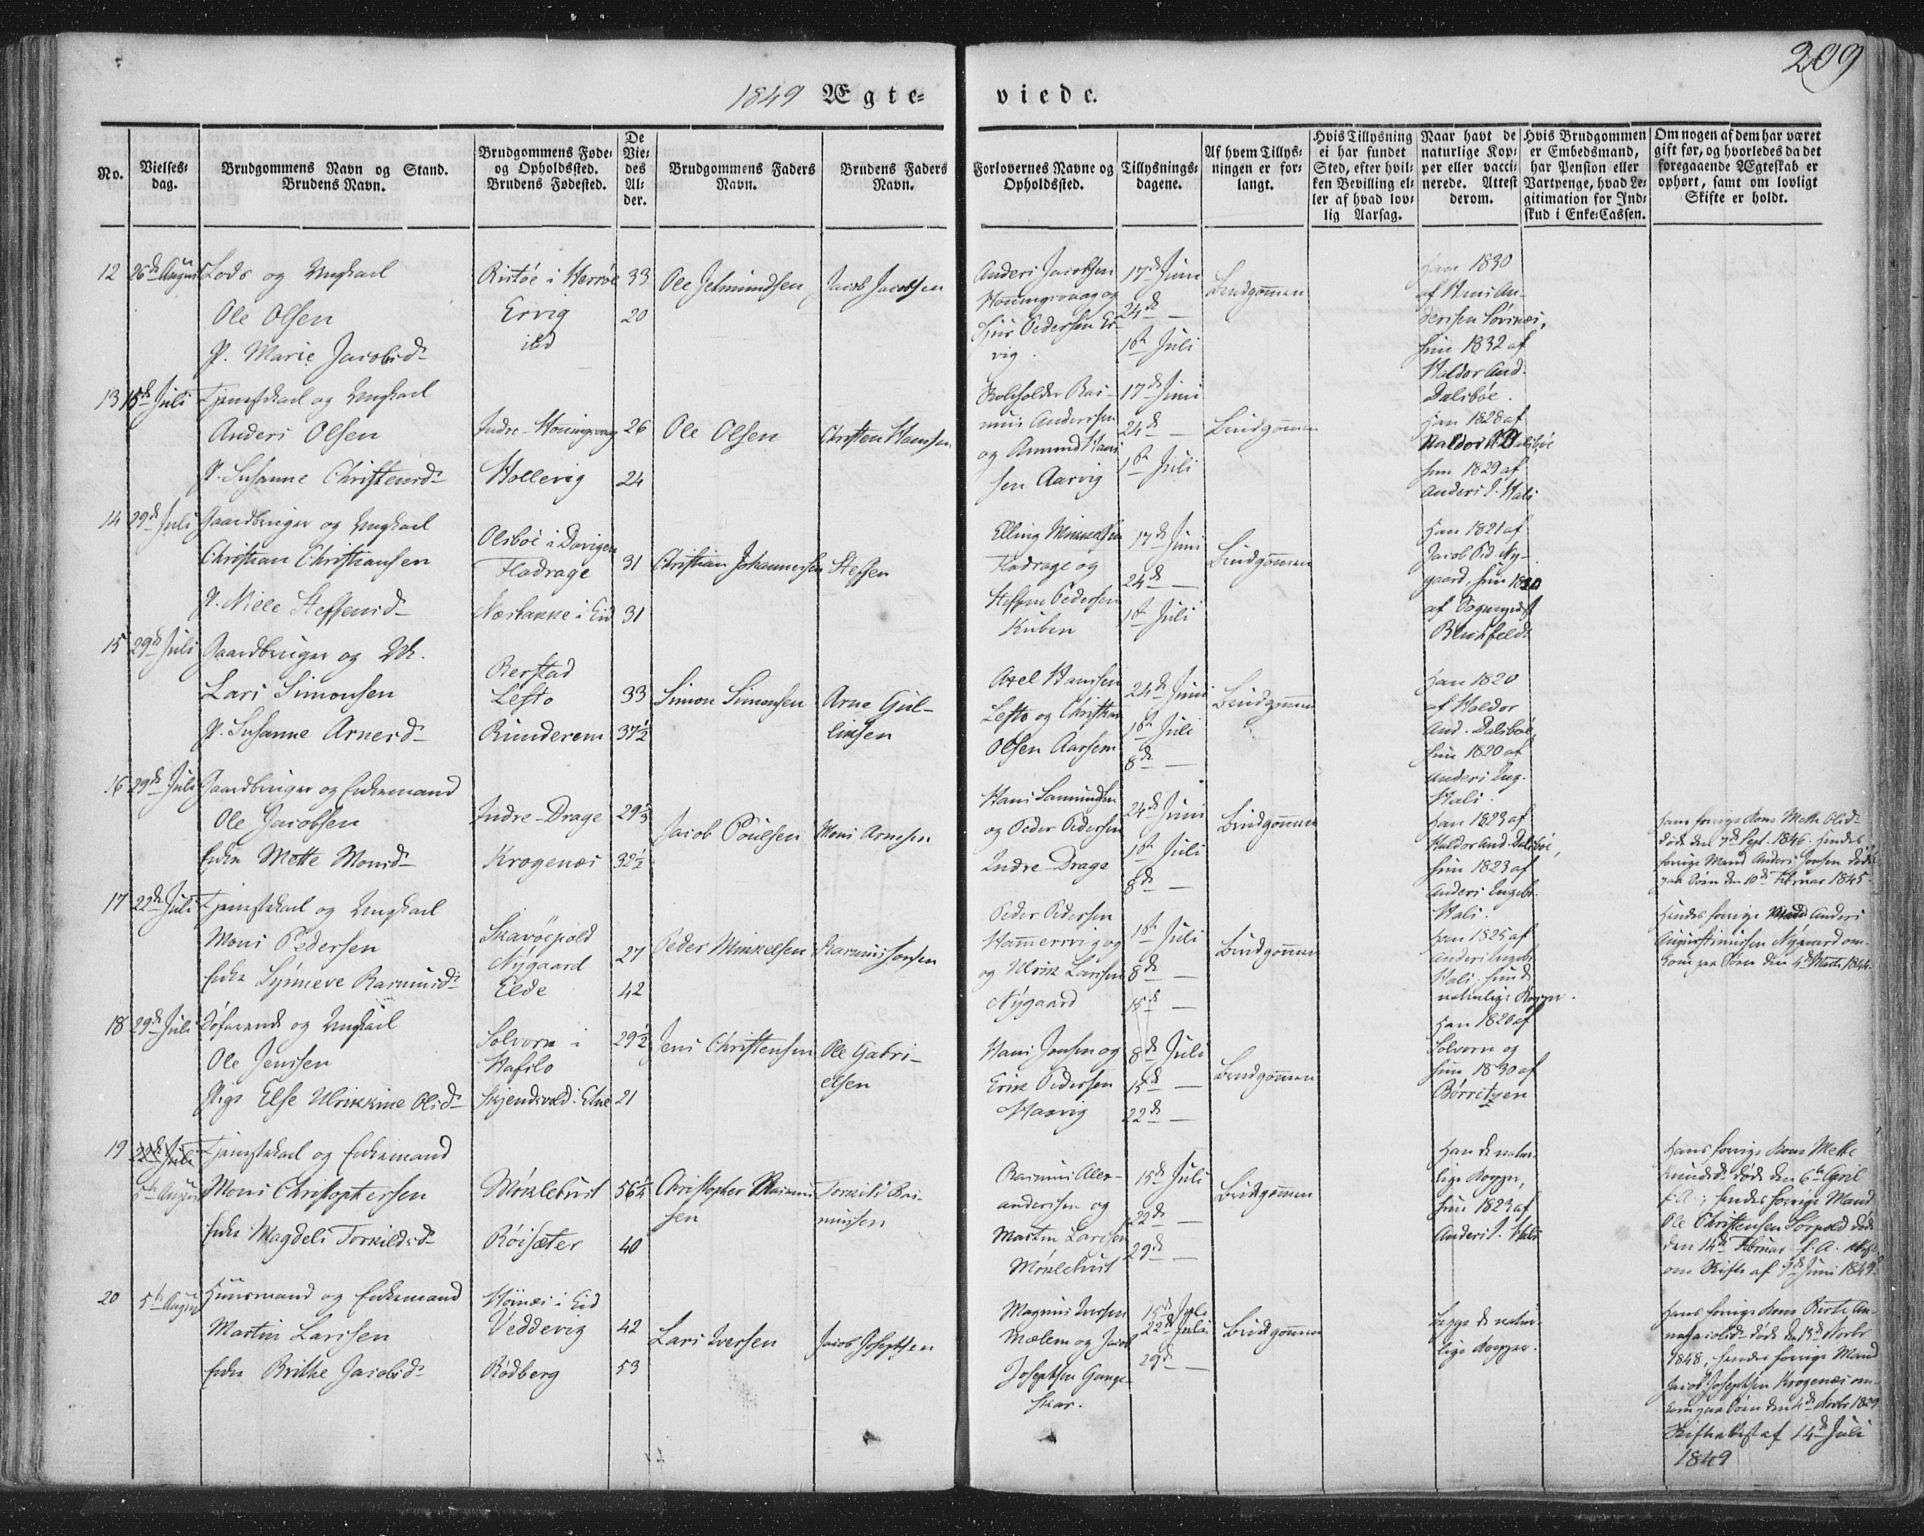 209
1849 Ægte- viede.
No.
Vielses-
dag.
Brudgommens Navn og Stand.
Brudens Navn.
Brudgommens Føde-
og Opholdssted.
Brudens Fødested.
De
Vie-
des
Al-
der.
Brudgommens Faders
Navn.
Brudens Faders
Navn.
Forlovernes Navne og
Opholdssted.
Tillysnings-
dagene.
Af hvem Tillys-
ningen er for-
langt.
Hvis Tillysning
ei har fundet
Sted, efter hvil-
ken Bevilling el-
ler af hvad lov-
lig Aarsag.
Naar havt de
naturlige Kop-
per eller vacci-
nerede. Attest
derom.
Hvis Brudgommen
er Embedsmand,
har Pension eller
Vartpenge, hvad Le-
gitimation for Ind-
skud i Enke-Cassen.
Om nogen af dem har været
gift før, og hvorledes da det
foregaaende Ægteskab er
ophørt, samt om lovligt
Skifte er holdt.
12
26de August
Lods og Ungkarl
Ole Olsen
P. Marie Jacobsd
Ervig
ibd
33
20
Jacob Jacobsen
Anders Jacobsen
17de Juni
24de —
1ste Juli
Brudgommen
Han 1830
af Hans An-
hun 1832 af
Haldor And.
Dalsbøe.
13
15de Juli
Tjenestekarl og Ungkarl
Anders Olsen
P. Susanne Christensd
Indre-Honningsvaag
Hollevig
26
24
Ole Olsen
Christen Hansen
Rasmus Anderssen
og Amund Hans
sen Aarvig
17de Juni
24de —
1ste Juli
Brudgommen
Han 1828 af
hun 1829 af
Anders I. Hals
14
29de Juli
Gaardbruger og Ungkarl
Christian Christiansen
P. Nille Steffensd
Flødrage
31
31
Christian Johannesen
Steffen
Flødrage og
Steffen Pedersen
17de Juni
24de —
1ste Juli
Brudgommen
Han 1821 af
Jacob Pd. Ny-
gaard, hun
15
29de Juli
Gaardbruger og Uk.
Lars Simonsen
P. Susanne Arnesd
Berstad
Lefto
Runderem
33
37½
Simon Simonsen
Arne Gul-
Axel Hanssen
Lefto og Christian
Olsen Aarsem
24de Juni
1ste Juli
8de —
Brudgommen
Han 1820
af Haldor
And. Dalsbøe
hun 1820 af
Anders Eng.
Hals.
16
29de Juli
Gaardbruger og Enkemand
Ole Jacobsen
Enke Mette Monsd
Indre-Drage
Krogenæs
32½
Jacob Poulsen
Mons Arnesen
og Peder Pedersen
Indre-Drage
24de Juni
1ste Juli
8de —
Brudgommen
Han 1823 af
Haldor And. Dalsbøe,
hun 1823 af
Anders Engebr.
Hals.
Hans forrige Kone Mette Olsd
døde den 7de Sept. 1846. Hendes
forrige Mand Anders Jensen døde
paa Søen den 10de Februar 1845.
17
22de Juli
Tjenestekarl og Ungkarl
Mons Pedersen
Enke Synneve Rasmusd
Nygaard
Elde
27
42
Peder Mikkelsen
Rasmus Jonsen
Peder Pedersen
Hammervig og
og Ulrik Larssen
Nygaard
1ste Juli
8de —
15de —
Brudgommen
Han 1825 af
Anders Engebr.
Hals. hun de
naturlige Kopper.
Hendes forrige Mand Anders
Augustinussen Nygaard om-
kom paa Søen den 4de Marts 1844.
18
29de Juli
Søfarende og Ungkarl
Ole Jenssen
Pige Else Ulrikkine Olsd
Solvorn i
Hafslo
29½
21
Jens Christensen
Ole Gabri-
elsen
Hans Jensen og
Erik Pedersen
8de Juli
15de —
22de —
Brudgommen
Han 1820 af
Solvorn og
hun 1830 af
19
22de Juli
5te August
Tjenestekarl og Enkemand
Mons Christophersen
Enke Magdeli Torkildsd
Møklebust
Røisæter
56¼
40
Christopher Rasmus
sen
Torkild Ras-
mussen
Rasmus Alex-
anderssen og
Martin Larssen
Møklebust
15de Juli
22de —
29de —
Brudgommen
Han de natur-
lige Kopper,
hun 1823 af
Anders I. Hals
Hans forrige Kone Mette
Knudsd døde den 6te April
f. A.; hendes forrige Mand
Ole Christensen Sørpold døde
den 14de Februar f. A. Attest
om Skifte af 9de Juni 1849.
20
5te August
Huusmand og Enkemand
Martin Larssen
Enke Brithe Jacobsd
Veddevig
Rødberg
42
53
Lars Iversen
Jacob Josephsen
Magnus Iversen
Mælem og Jacob
Josephsen Gange-
skar.
15de Juli
22de Juli
29de —
Brudgommen
begge de natur-
lige Kopper.
1848, hendes forrige Mand
Jacob Josephsen Krogenæs om-
Skifteattest af 14de Juli
1849